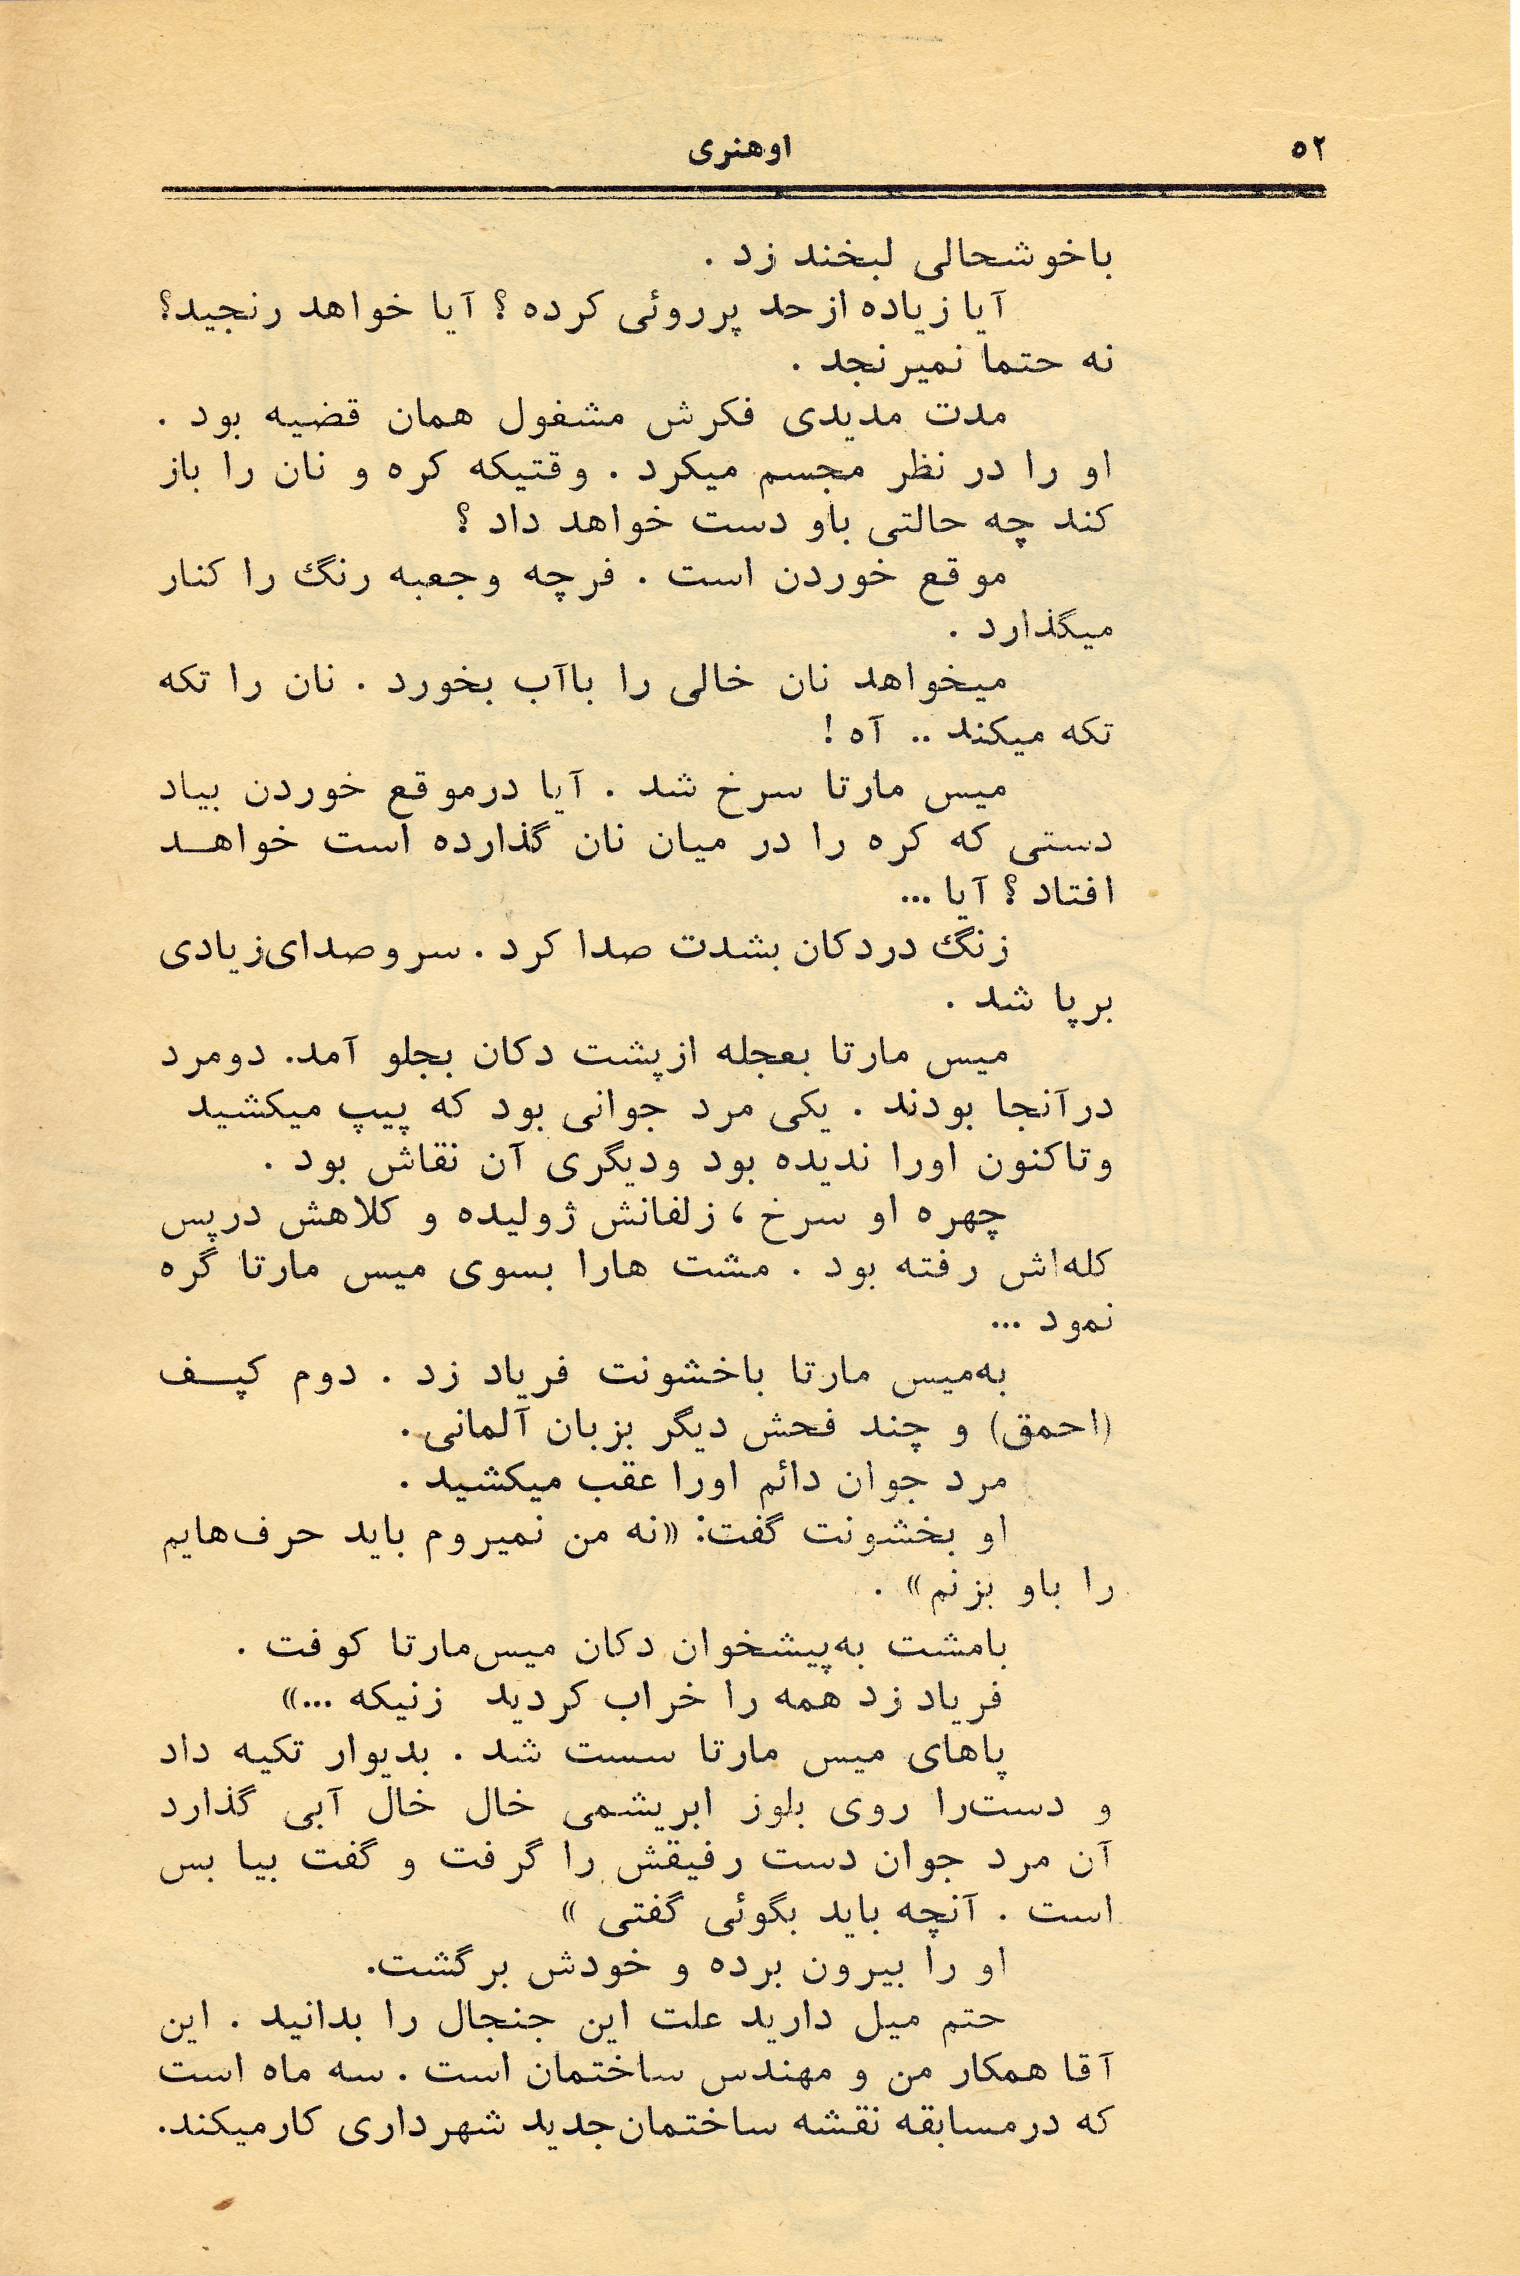 ۵۲
اوهنری
باخوشحالی لبخند زد .
آیا زیاده ازحد پرروئی کرده ؟ آیا خواهد رنجید؟
نه حتما نمیرنجد .
مدت مدیدی فکرش مشغول همان قضیه بود .
او را در نظر مجسم میکرد . وقتیکه کره و نان را باز
کند چه حالتی باو دست خواهد داد ؟
موقع خوردن است . فرچه وجعبه رنگ را کنار
میگذارد .
میخواهد نان خالی را باآب بخورد . نان را تکه
تکه میکند .. آه !
میس مارتا سرخ شد . آیا درموقع خوردن بیاد
دستی که کره را در میان نان گذارده است خواهـد
افتاد ؟ آیا ...
زنگ دردکان بشدت صدا کرد . سروصدای‌زیادی
برپا شد .
میس مارتا بعجله ازپشت دکان بجلو آمد. دومرد
درآنجا بودند . یکی مرد جوانی بود که پیپ میکشید
وتاکنون اورا ندیده بود ودیگری آن نقاش بود .
چهره او سرخ ، زلفانش ژولیده و کلاهش درپس
کله‌اش رفته بود . مشت هارا بسوی میس مارتا گره
نمود ...
به‌میس مارتا باخشونت فریاد زد . دوم کپـف
(احمق) و چند فحش دیگر بزبان آلمانی.
مرد جوان دائم اورا عقب میکشید .
او بخشونت گفت: «نه من نمیروم باید حرف‌هایم
را باو بزنم» .
بامشت به‌پیشخوان دکان میس‌مارتا کوفت .
فریاد زد همه را خراب کردید زنیکه ...»
پاهای میس مارتا سست شد . بدیوار تکیه داد
و دست‌را روی بلوز ابریشمی خال خال آبی گذارد
آن مرد جوان دست رفیقش را گرفت و گفت بیا بس
است . آنچه باید بگوئی گفتی »
او را بیرون برده و خودش برگشت.
حتم میل دارید علت این جنجال را بدانید . این
آقا همکار من و مهندس ساختمان است . سه ماه است
که درمسابقه نقشه ساختمان‌جدید شهرداری کارمیکند.